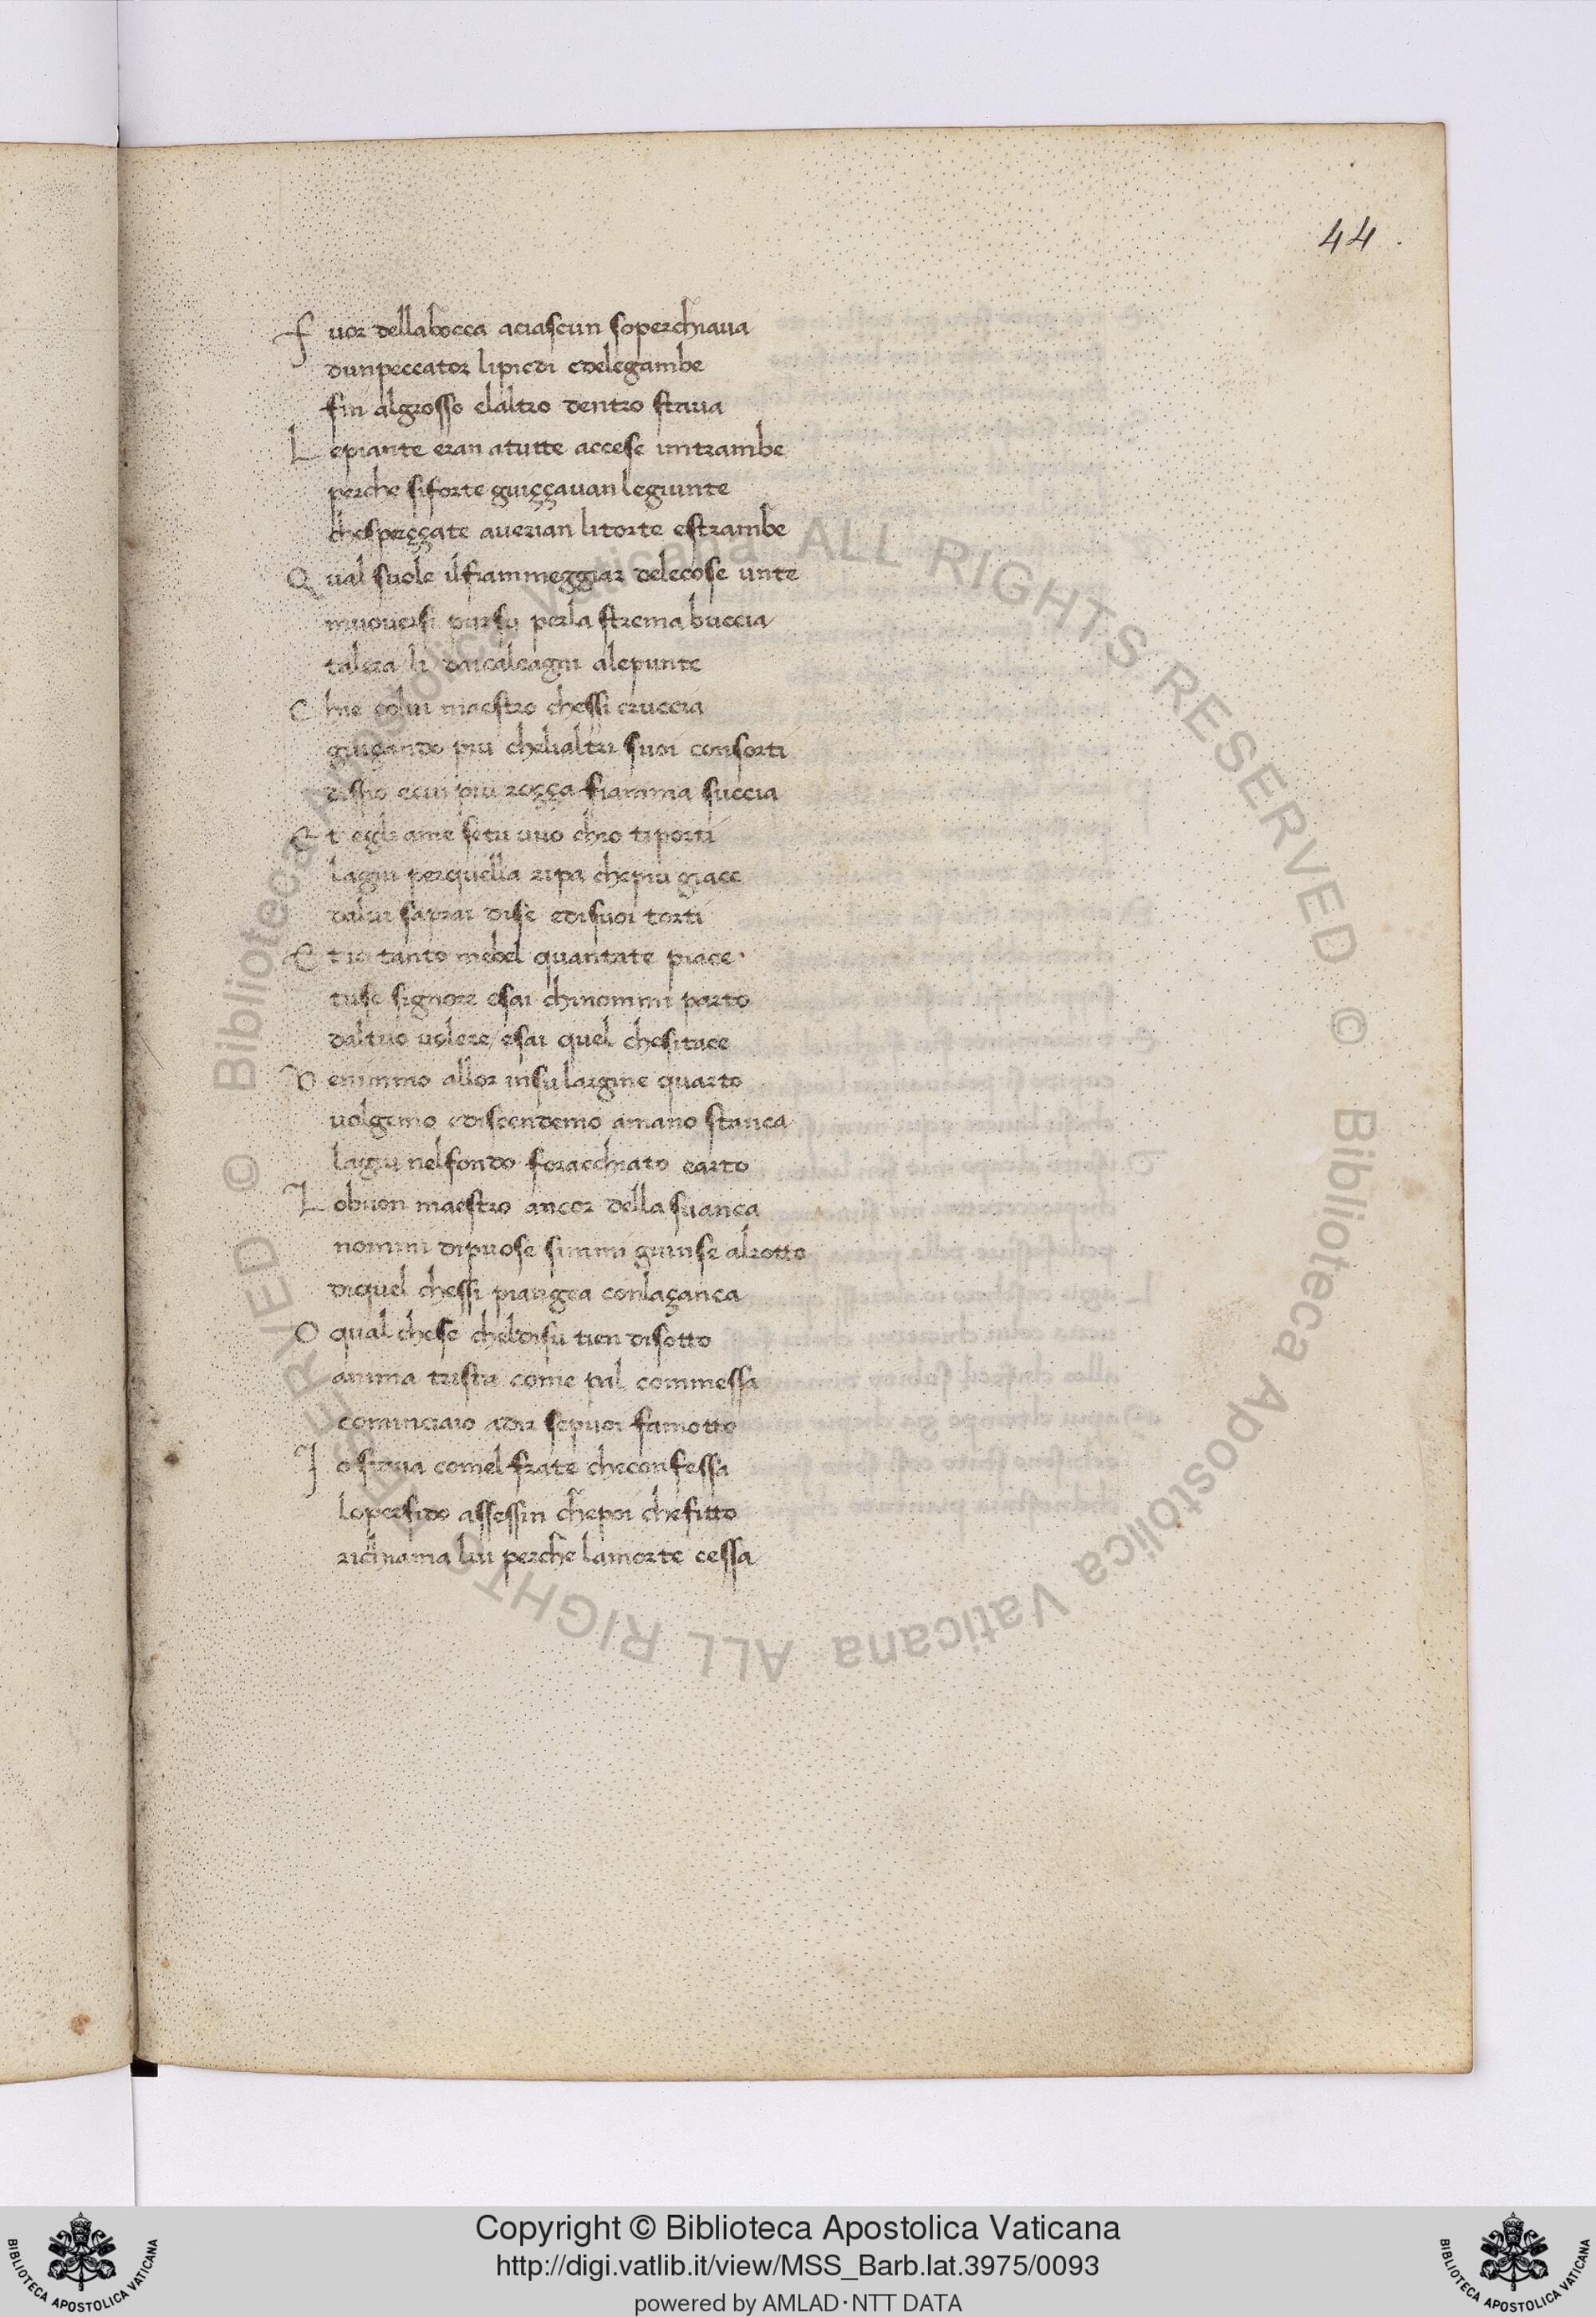 44.
Fuor dellabocca aciascun soperchiava
dunpeccator lipiedi edelegambe
fin algrosso elaltro dentro stava
Lepiante eran atutte accese intrambe
perche siforte guiççavan legiunte
chespeççate averian litorte estrambe
Qual suole ilfiammeggiar delecose unte
muoversi pursu perla strema buccia
talera li daicalcagni alepunte
Chie colui maestro chessi cruccia
guiçando piu chelialtri suoi consorti
dissio ecui piu roçça fiamma succia
Et egli ame setu vuo chio tiporti
lagiu perquella ripa chepiu giace
dalui saprai dise edisuoi torti
Et io tanto mebel quantate piace
tuse signore esai chinommi parto
daltuo volere/esai quel chesitace
Venimmo allor insulargine quarto
volgemo ediscendemo amano stanca
lagiu nelfondo foracchiato earto
Lobuon maestro ancor della suanca
nommi dipuose simmi giunse alrotto
diquel chessi piangea conlaçanca
O qual chese cheldisu tien disotto
anima trista come pal commessa
cominciaio adir sepuoi famotto
Io stava comel frate checonfessa
loperfido assessin chepoi chefitto
richiama lui perche lamorte cessa
Copyright © Biblioteca Apostolica Vaticana
http://digi.vatlib.it/view/MSS_Barb.lat.3975/0093
powered by AMLAD·NTT DATA
BIBLIOTECA APOSTOLICA VATICANA
BIBLIOTECA APOSTOLICA VATICANA
© Biblioteca Apostolica Vaticana ALL RIGHTS RESERVED © Biblioteca Apostolica Vaticana ALL RIGHTS RESERVED